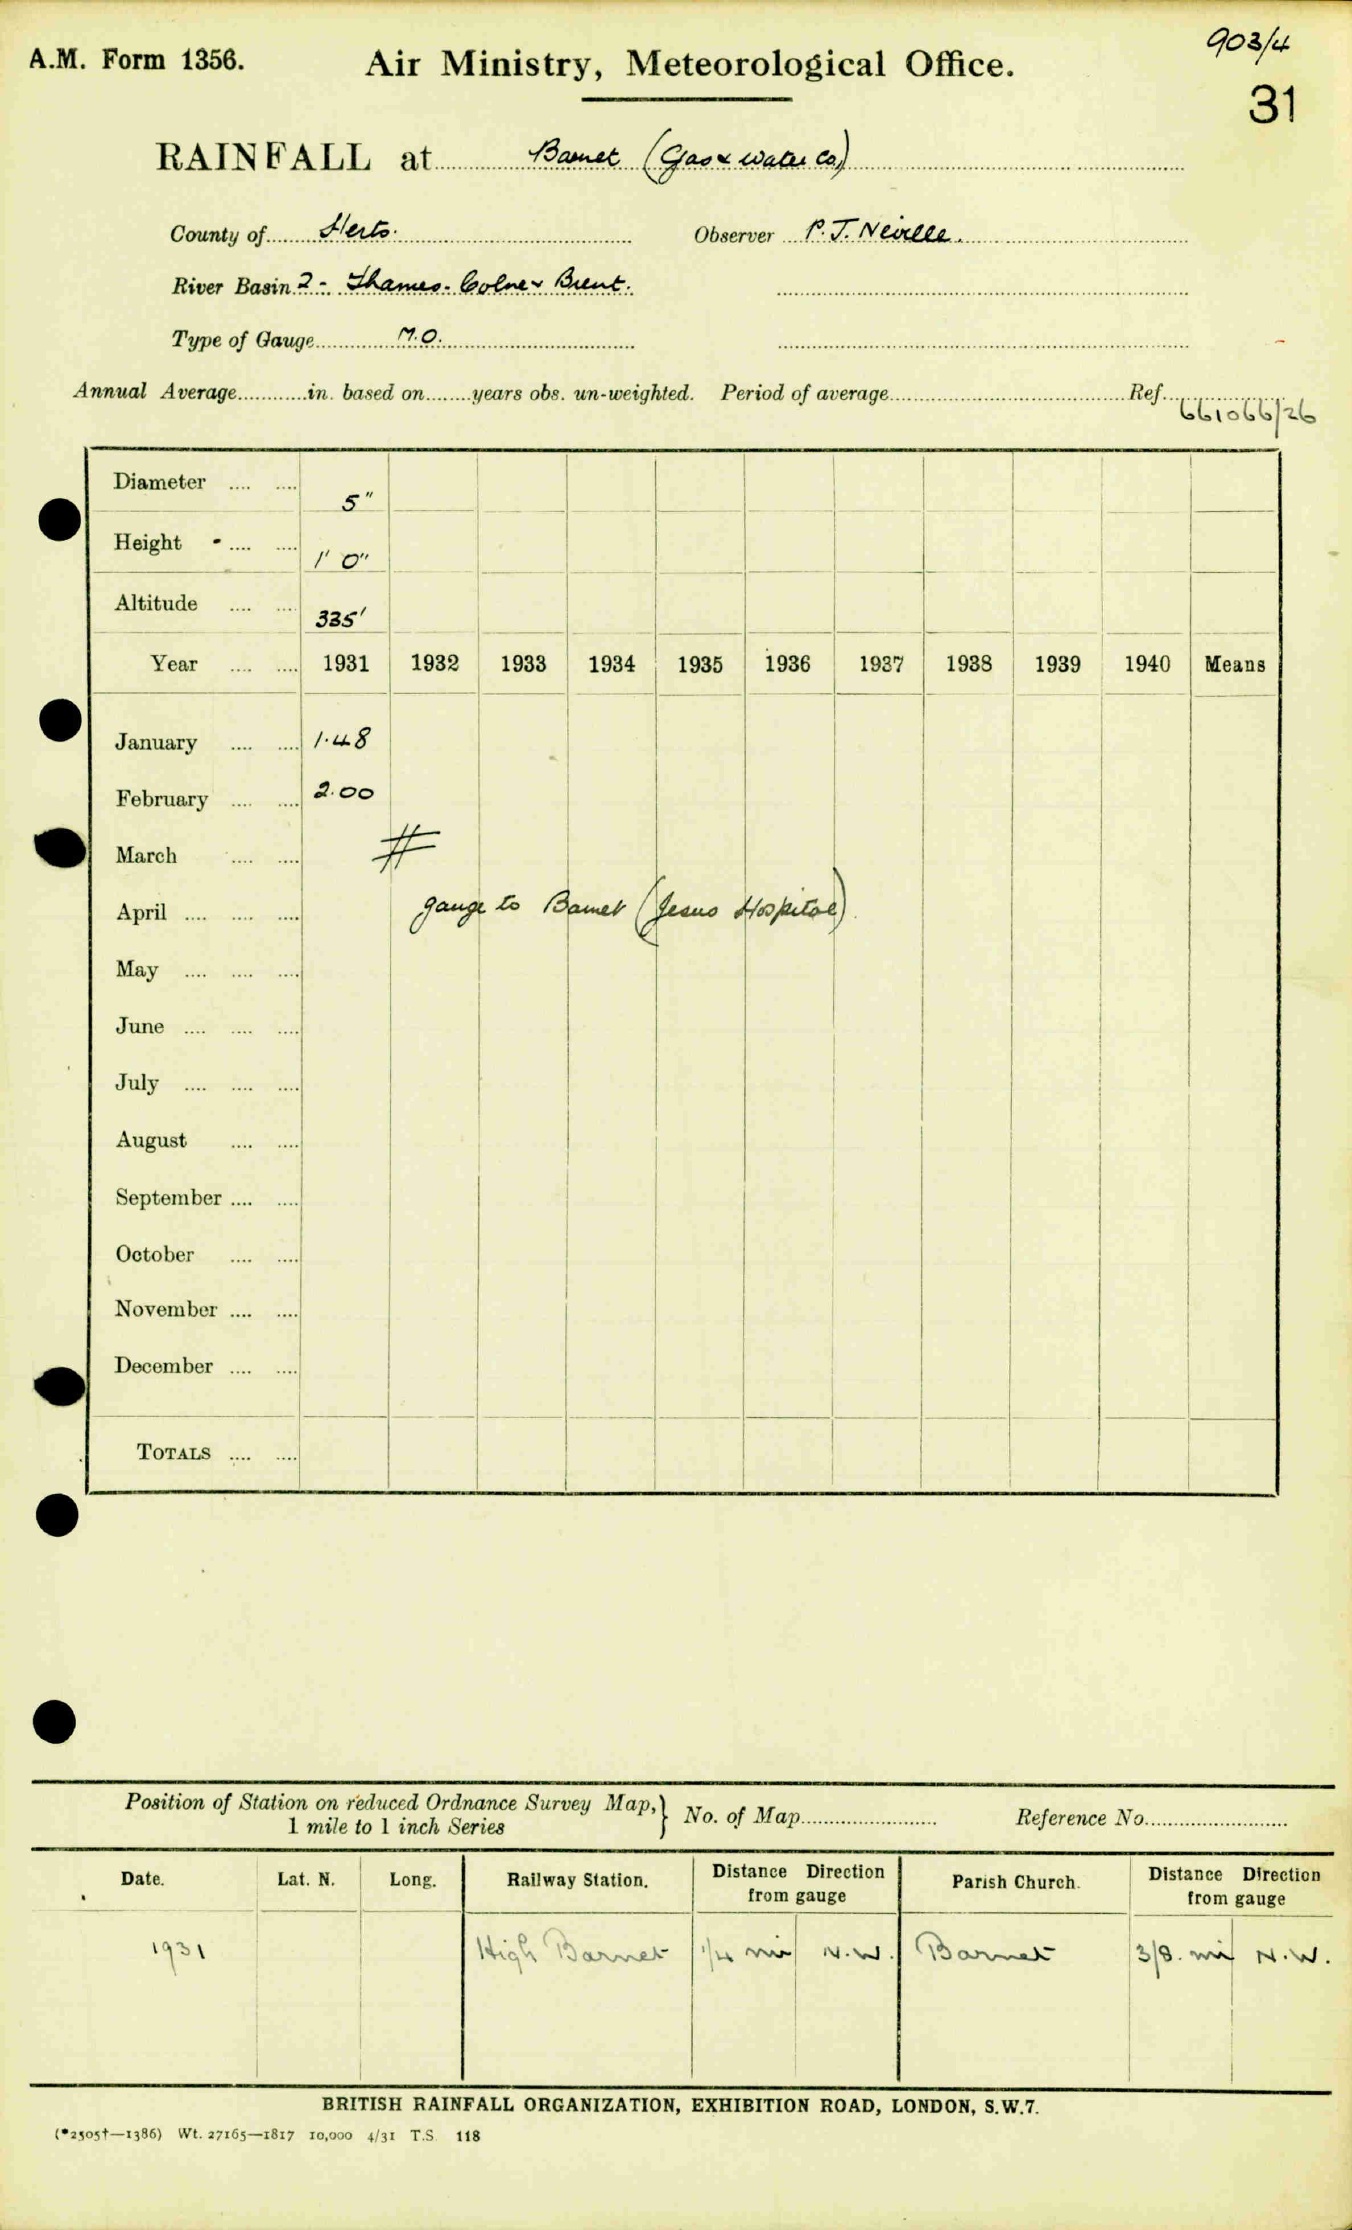 903/4
A.M. Form 1356. Air Ministry, Meteorological Office.
31
RAINFALL at Barnet (Gas & Water Co.)
County of Herts. Observer P. J. Neville.
River Basin 2 - Thames - Colne & Brent.
Type of Gauge M.O.
Annual Average in. based on years obs. un-weighted. Period of average Ref. 661066/26
Diameter 5"
Height 1' 0"
Altitude 335'
Year 1931 1932 1933 1934 1935 1936 1937 1938 1939 1940 Means
January 1.48
February 2.00
March
April gauge to Barnet (Jesus Hospital)
May
June
July
August
September
October
November
December
TOTALS
Position of Station on reduced Ordnance Survey Map, } No. of Map Reference No.
1 mile to 1 inch Series
Date. Lat. N. Long. Railway Station. Distance Direction from gauge Parish Church. Distance Direction from gauge
1931 High Barnet 1/4 mi N.W. Barnet 3/8. mi N.W.
BRITISH RAINFALL ORGANIZATION, EXHIBITION ROAD, LONDON, S.W.7.
(*2505†—1386) Wt. 27165—1817 10,000 4/31 T.S. 118